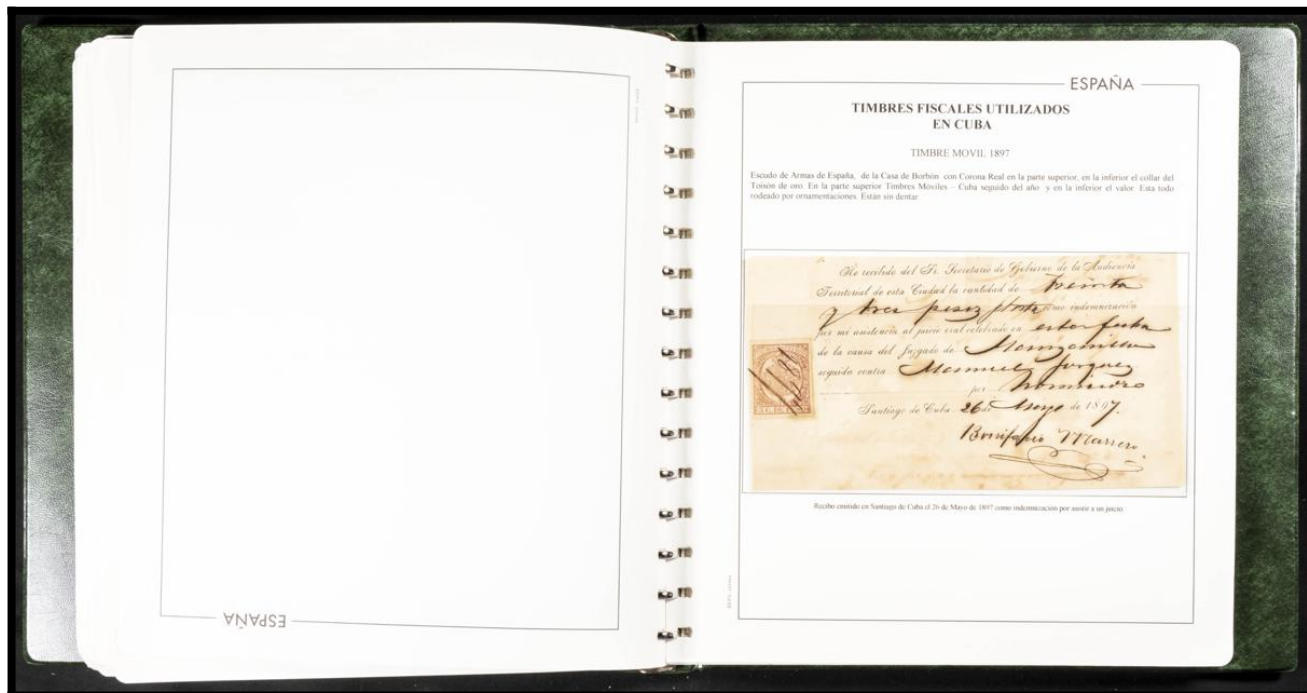 ESPAÑA
ESPAÑA
TIMBRES FISCALES UTILIZADOS
EN CUBA
TIMBRE MOVIL 1897
Escudo de Armas de España, de la Casa de Borbón con Corona Real en la parte superior, en la inferior el collar del
Toisón de oro. En la parte superior Timbres Móviles – Cuba seguido del año y en la inferior el valor. Esta todo
rodeado por ornamentaciones. Están sin dentar
He recibido del Sr. Secretario de Gobierno de la Audiencia
Territorial de esta Ciudad la cantidad de Treinta
y tres pesos plata como indemnización
por mi asistencia al juicio oral celebrado en esta fecha
de la causa del Juzgado de Manzanillo
seguida contra Manuel
por homicidio
Santiago de Cuba 26 de Mayo de 1897.
Bonifacio Marrero
Recibo emitido en Santiago de Cuba el 26 de Mayo de 1897 como indemnización por asistir a un juicio.